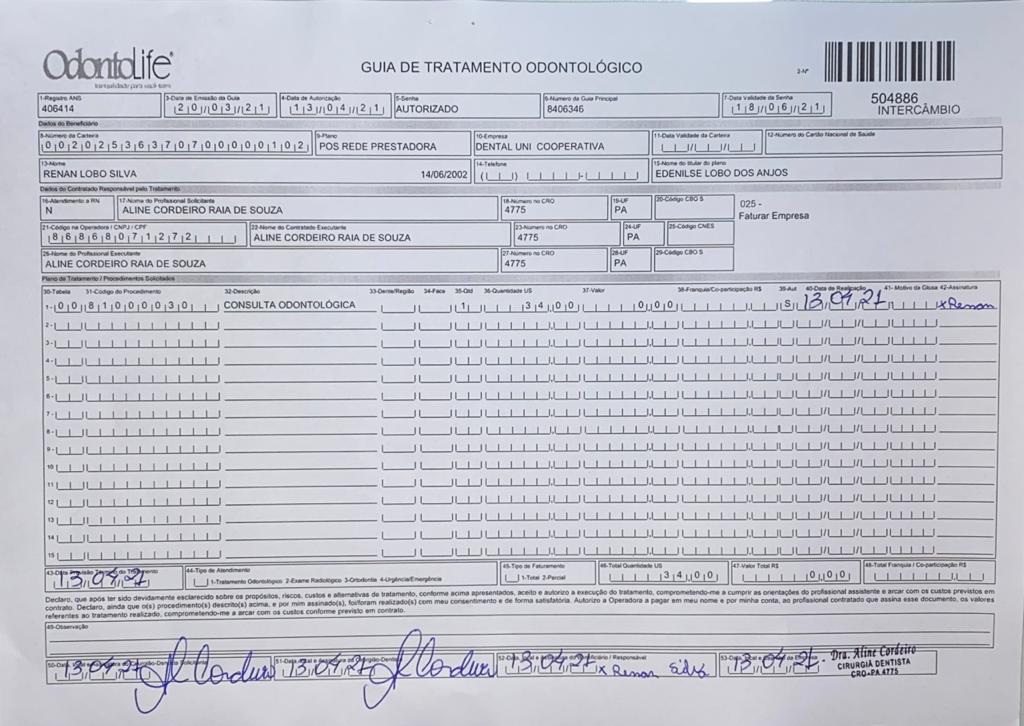 OdontoLife®
tranquilidade para você sorrir
GUIA DE TRATAMENTO ODONTOLÓGICO
2-Nº
504886
INTERCÂMBIO
1-Registro ANS 3-Data de Emissão da Guia 4-Data de Autorização 5-Senha 6-Número da Guia Principal 7-Data Validade da Senha
406414 20/03/21 13/04/21 AUTORIZADO 8406346 18/06/21
Dados do Beneficiário
8-Número da Carteira 9-Plano 10-Empresa 11-Data Validade da Carteira 12-Número do Cartão Nacional de Saúde
00202536370700000102 POS REDE PRESTADORA DENTAL UNI COOPERATIVA
13-Nome 14-Telefone 15-Nome do titular do plano
RENAN LOBO SILVA 14/06/2002 EDENILSE LOBO DOS ANJOS
Dados do Contratado Responsável pelo Tratamento
16-Atendimento a RN 17-Nome do Profissional Solicitante 18-Número no CRO 19-UF 20-Código CBO S
N ALINE CORDEIRO RAIA DE SOUZA 4775 PA
025 -
Faturar Empresa
21-Código na Operadora / CNPJ / CPF 22-Nome do Contratado Executante 23-Número no CRO 24-UF 25-Código CNES
86868071272 ALINE CORDEIRO RAIA DE SOUZA 4775 PA
26-Nome do Profissional Executante 27-Número no CRO 28-UF 29-Código CBO S
ALINE CORDEIRO RAIA DE SOUZA 4775 PA
Plano de Tratamento / Procedimentos Solicitados
30-Tabela 31-Código do Procedimento 32-Descrição 33-Dente/Região 34-Face 35-Qtd 36-Quantidade US 37-Valor 38-Franquia/Co-participação R$ 39-Aut 40-Data de Realização 41- Motivo da Glosa 42-Assinatura
1- 00 81000030 CONSULTA ODONTOLÓGICA 1 34,00 0,00 S 13 04 21 x Renan
2-
3-
4-
5-
6-
7-
8-
9-
10
11
12
13
14
15
44-Tipo de Atendimento 45-Tipo de Faturamento 46-Total Quantidade US 47-Valor Total R$ 48-Total Franquia / Co-participação R$
1-Tratamento Odontológico 2-Exame Radiológico 3-Ortodontia 4-Urgência/Emergência 1-Total 2-Parcial 34,00 0,00
Declaro, que após ter sido devidamente esclarecido sobre os propósitos, riscos, custos e alternativas de tratamento, conforme acima apresentados, aceito e autorizo a execução do tratamento, comprometendo-me a cumprir as orientações do profissional assistente e arcar com os custos previstos em
contrato. Declaro, ainda que o(s) procedimento(s) descrito(s) acima, e por mim assinado(s), foi/foram realizado(s) com meu consentimento e de forma satisfatória. Autorizo a Operadora a pagar em meu nome e por minha conta, ao profissional contratado que assina esse documento, os valores
referentes ao tratamento realizado, comprometendo-me a arcar com os custos conforme previsto em contrato.
49-Observação
13 04 21 13 04 21 13 04 21 x Renan Silva 13 04 21
Dra. Aline Cordeiro
CIRURGIÃ DENTISTA
CRO-PA 4775